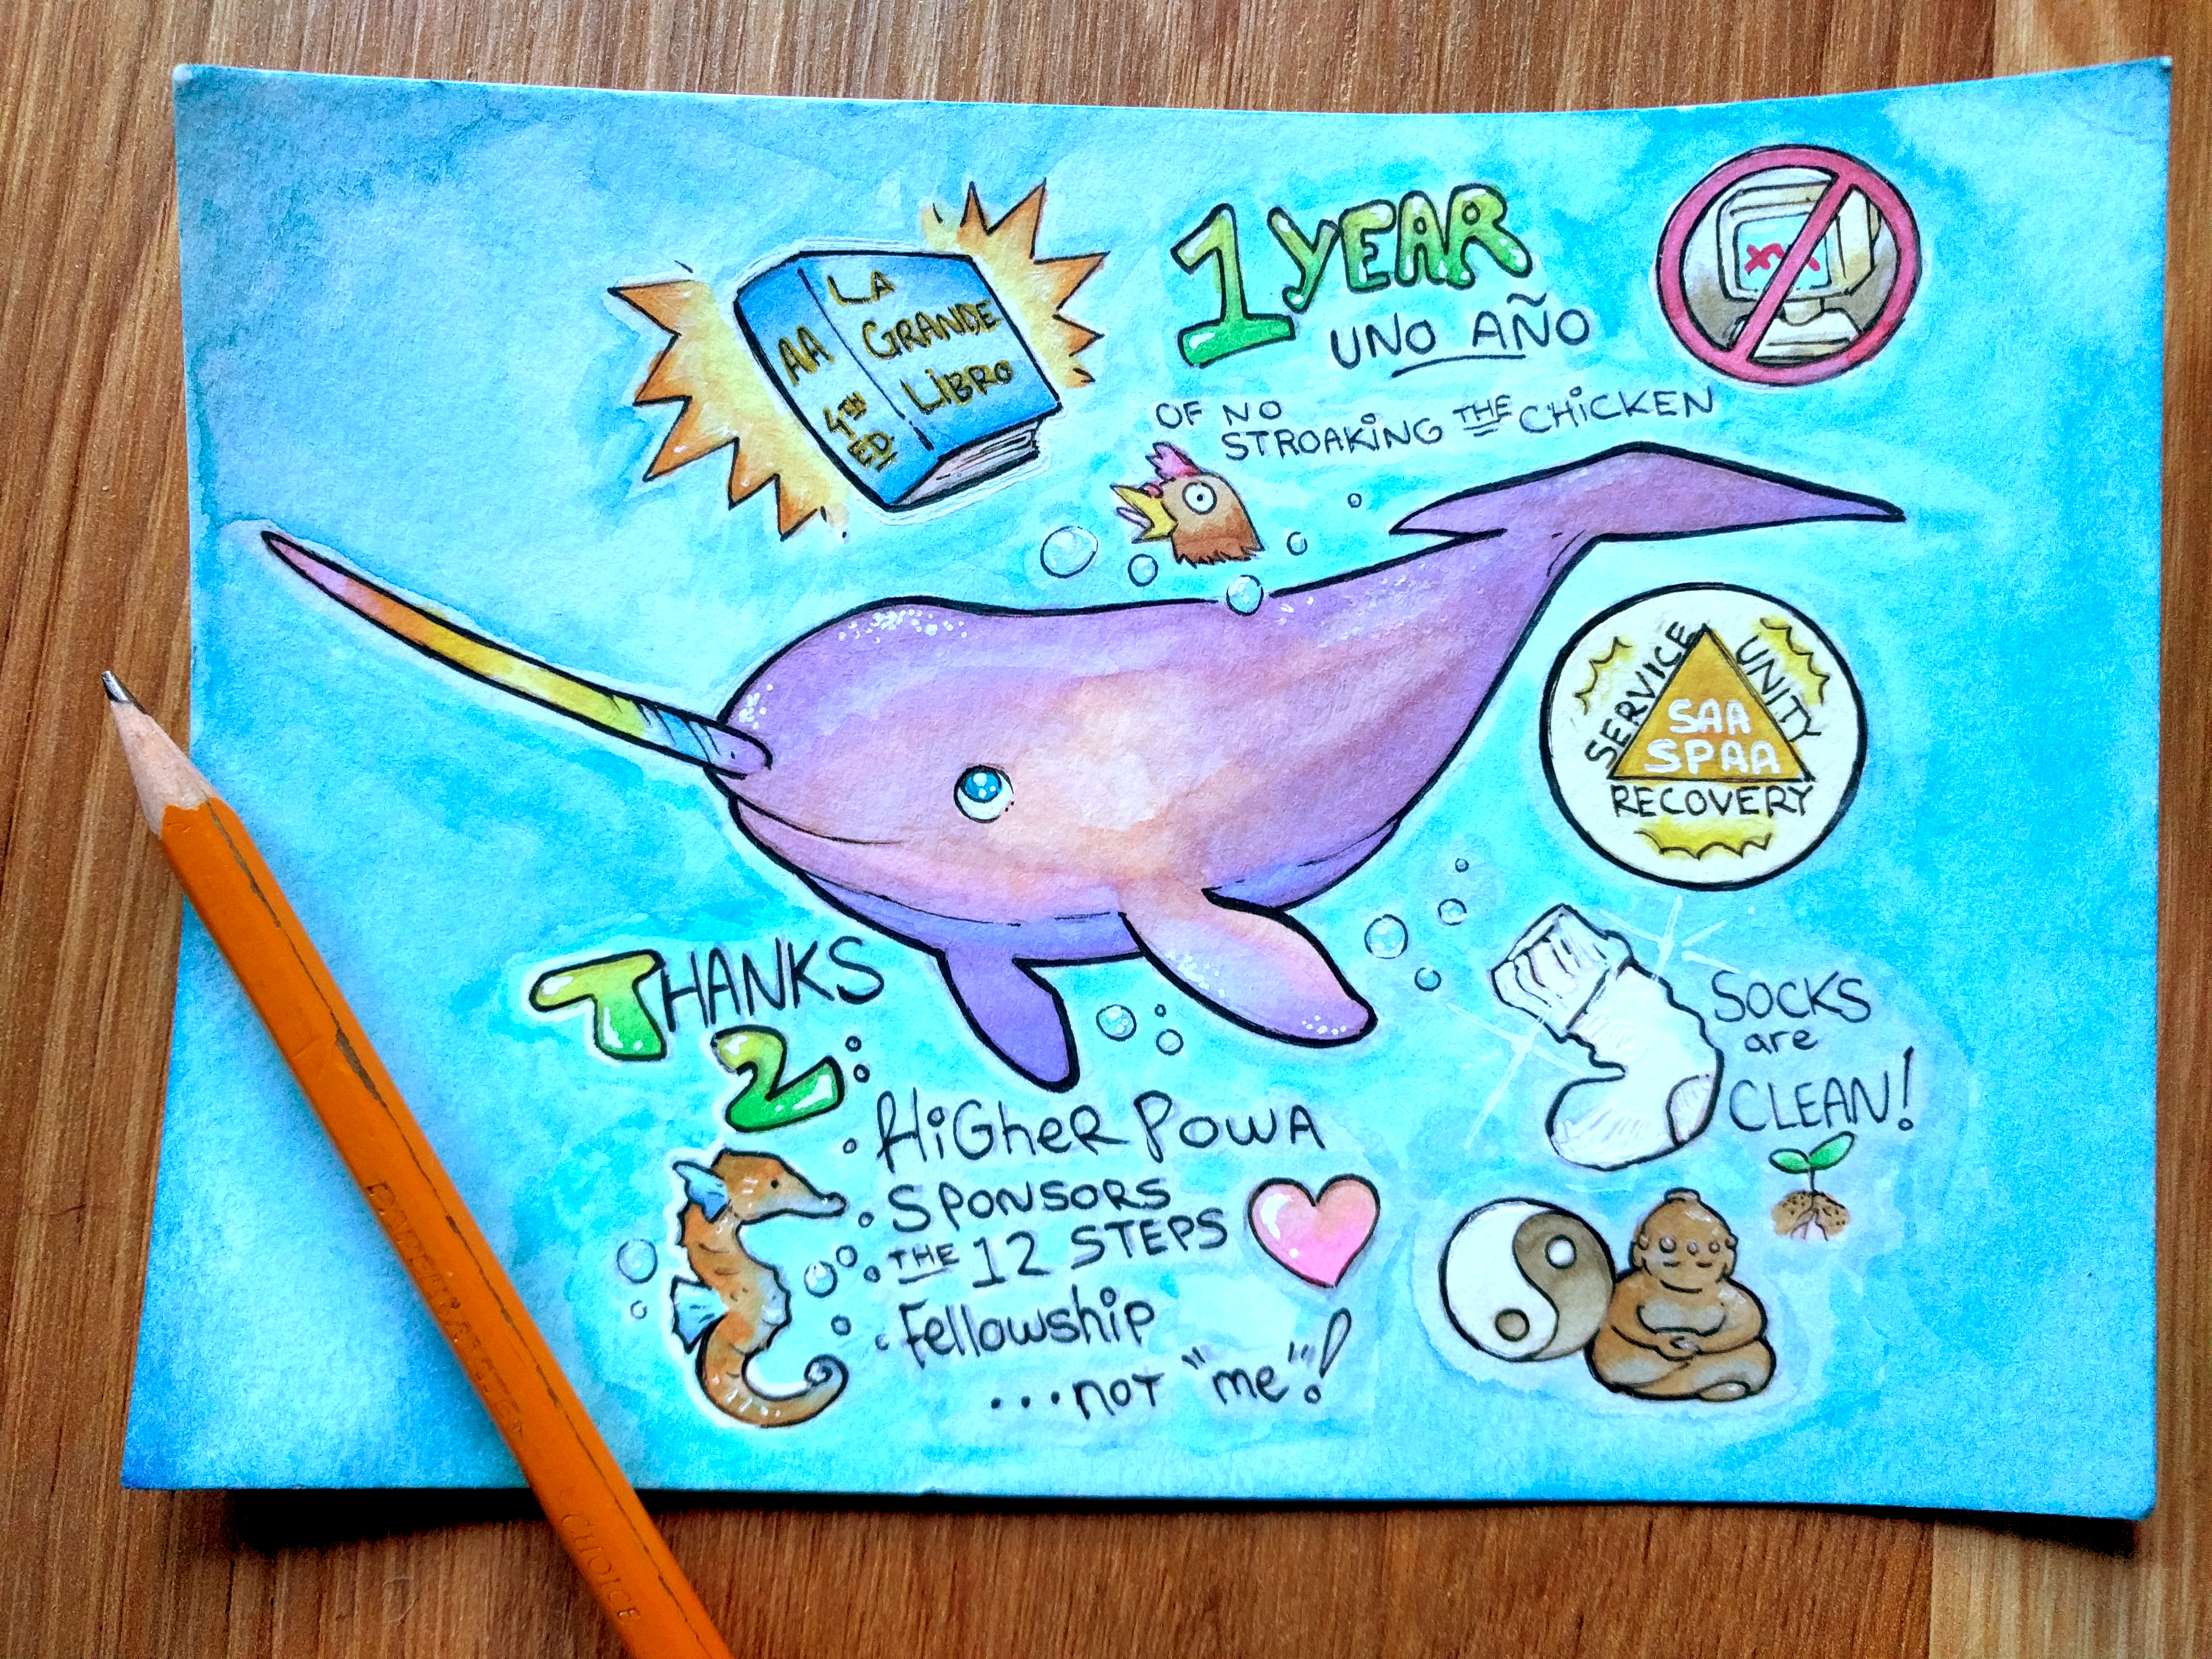 LA
GRANDE
LiBRO
AA
4TH
ED.
1 YEAR
UNO AÑO
OF NO
STROAKiNG THE CHiCKEN
XXX
SERVICE
UNITY
SAA
SPAA
RECOVERY
THANKS
2:
HiGheR POWA
SPONSORS
THE 12 STEPS
Fellowship
...not "me"!
SOCKS
are
CLEAN!
CHOICE